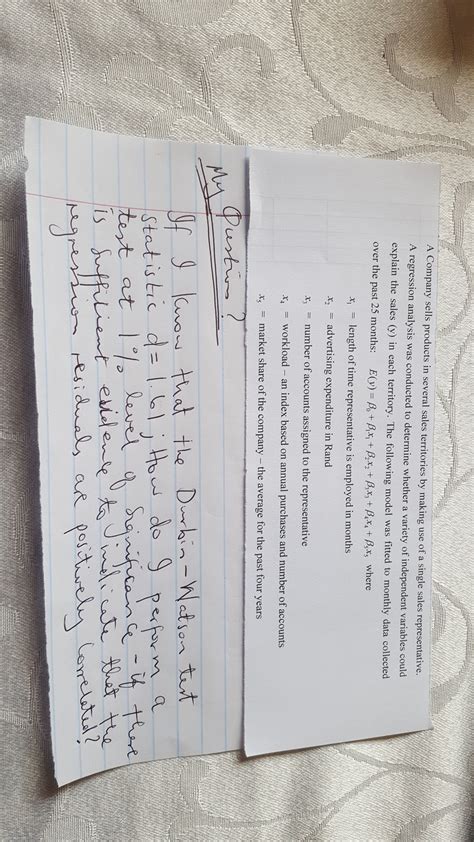 A Company sells products in several sales territories by making use of a single sales representative.
A regression analysis was conducted to determine whether a variety of independent variables could
explain the sales (y) in each territory. The following model was fitted to monthly data collected
over the past 25 months: E(y) = β₀ + β₁x₁ + β₂x₂ + β₃x₃ + β₄x₄ + β₅x₅ where
x₁ = length of time representative is employed in months
x₂ = advertising expenditure in Rand
x₃ = number of accounts assigned to the representative
x₄ = workload – an index based on annual purchases and number of accounts
x₅ = market share of the company – the average for the past four years
My Question?
If I know that the Durbin-Watson test
statistic d=1.6; How do I perform a
test at 1% level of significance - if there
is sufficient evidence to indicate that the
regression residuals are positively correlated?